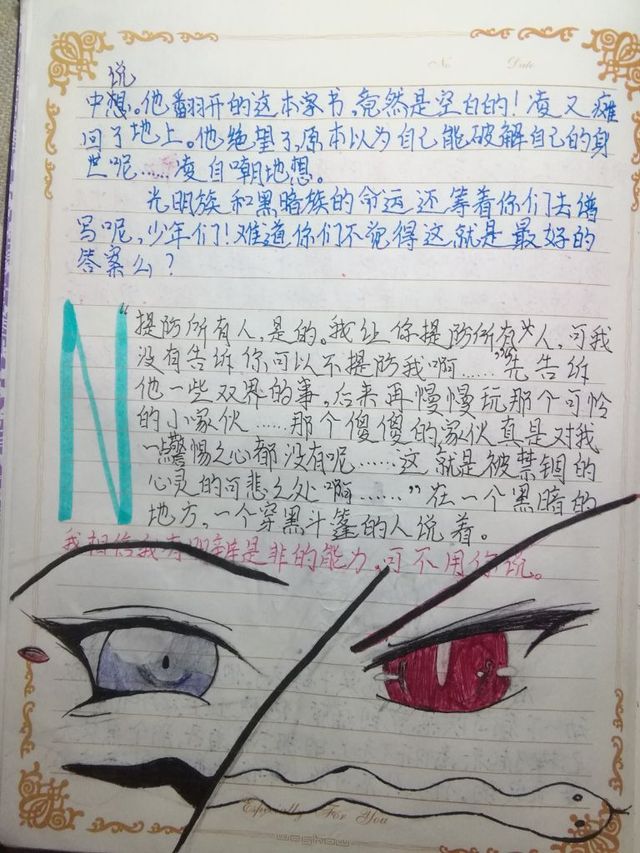 No
Date
说
中想。他翻开的这本家书,竟然是空白的!凌又瘫
回了地上。他绝望了,原本以为自己能破解自己的身
世呢……凌自嘲地想。
光明族和黑暗族的命运还等着你们去谱
写呢,少年们!难道你们不觉得这就是最好的
答案么?
N
“提防所有人,是的。我让你提防所有人,可我
没有告诉你可以不提防我啊……”“先告诉
他一些双界的事,后来再慢慢玩那个可怜
的小家伙……那个傻傻的家伙真是对我
一点警惕之心都没有呢……这就是被禁锢的
心灵的可悲之处啊……”在一个黑暗的
地方,一个穿黑斗篷的人说着。
我相信我有明辨是非的能力,可不用你说。
Especially For You